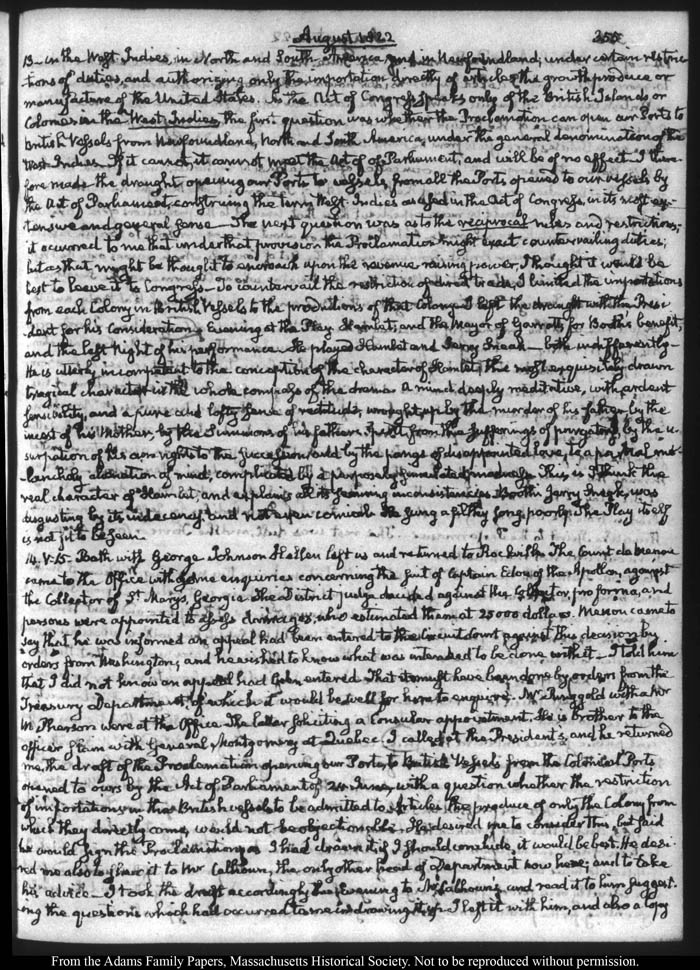 August 1822
255
13— in the West-Indies, in North and South-America, and in Newfoundland, under certain restric-
tions of duties, and authorizing only the importation directly of articles the growth produce or
manufacture of the United States. As the Act of Congress speaks only of the British Islands or
Colonies in the West Indies, the first question was whether the Proclamation can open our Ports to
British Vessels from Newfoundland, North and South America, under the general denomination of the
West-Indies. If it cannot, it cannot meet the Act of of Parliament, and will be of no effect. I there-
fore made the draught, opening our Ports to vessels, from all the Ports opened to our vessels by
the Act of Parliament, construing the term West-Indies as used in the Act of Congress, in its most ex-
tensive and general sense— The next question was as to the reciprocal rules and restrictions;
it occurred to me that under that provision the Proclamation might exact countervailing duties;
but as that might be thought to encroach upon the revenue raising power, I thought it would be
best to leave it to Congress— To countervail the restriction of direct trade, I limited the importations
from each Colony in British Vessels to the productions of that Colony. I left the draught with the Presi-
dent for his Consideration. Evening at the Play. Hamlet; and the Mayor of Garratt, for Booth's benefit,
and the last Night of his performance. He played Hamlet and Jerry Sneak— both indifferently—
He is utterly incompetent to the conception of the character of Hamlet; the most exquisitely drawn
tragical character in the whole compass of the drama. A mind deeply meditative, with ardent
sensibility, and a pure and lofty sense of rectitude, wrought up by the murder of his father by the
incest of his Mother, by the Summons of his father's Spirit from the sufferings of purgatory, by the u-
surpation of his own rights to the succession, and by the pangs of disappointed love, to a partial me-
lancholy alienation of mind, complicated by a purposely simulated madness. This, is I think the
real character of Hamlet, and explains all its seeming inconsistencies. Booth's Jerry Sneak, was
disgusting by its indecency and not even comical. He sung a filthy song poorly. The Play itself
is not fit to be seen.
14. V:15. Bath with George. Johnson Hellen left us and returned to Rockville. The Count de Menou
came to the Office with some enquiries concerning the suit of Captain Edou of the Apollon, against
the Collector of St. Marys, Georgia. The District judge decided against the Collector, pro forma, and
persons were appointed to assess damages, who estimated them at 25000 dollars. Menou came to
say that he was informed an appeal had been entered to the Circuit Court against this decision by
orders from Washington; and he wished to know what was intended to be done with it— I told him
that I did not know an appeal had been entered. That it must have been done by orders from the
Treasury Department of which it would be well for him to enquire. Mr Ringgold with a Mr
McPherson were at the Office. The latter soliciting a Consular appointment. He is brother to the
officer slain with General Montgomery at Quebec. I called at the President's, and he returned
me the draft of the Proclamation opening our Ports, to British Vessels from the Colonial Ports
opened to ours by the Act of Parliament of 24 June, with a question whether the restriction
of importations in the British vessels to be admitted to Articles the produce of only the Colony from
which they directly come, would not be objectionable. He desired me to consider this, but said
he would sign the Proclamation as I had drawn it if I should conclude, it would be best. He desi-
red me also to shew it to Mr Calhoun, the only other head of Department now here; and to take
his advice— I took the draft accordingly this Evening to Mr Calhoun's and read it to him suggest-
ing the questions which had occurred to me in drawing it up. I left it with him, and also a Copy
From the Adams Family Papers, Massachusetts Historical Society. Not to be reproduced without permission.